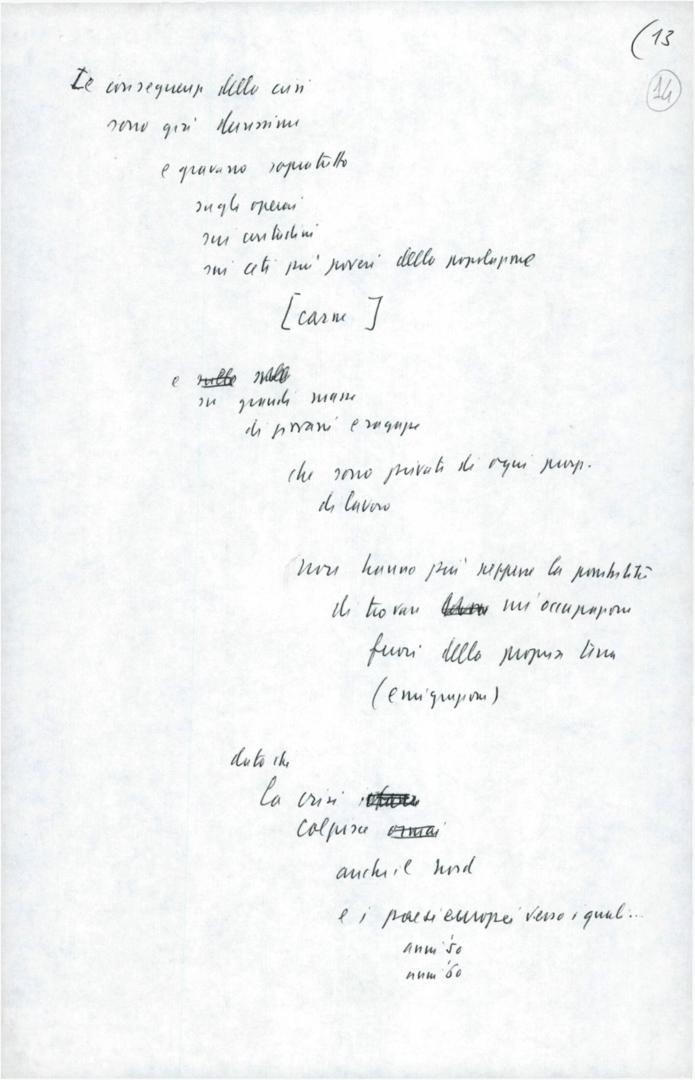 (13
14
Le conseguenze della crisi
sono già durissime
e gravano soprattutto
sugli operai
sui contadini
sui ceti più poveri della popolazione
[carne]
e sulle
su grandi masse
di giovani e ragazze
che sono privati di ogni prosp.
di lavoro
non hanno più neppure la possibilità
di trovare un'occupazione
fuori della propria terra
(emigrazione)
dato che
la crisi
colpisce ormai
anche il Nord
e i paesi europei verso i quali...
anni '50
anni '60